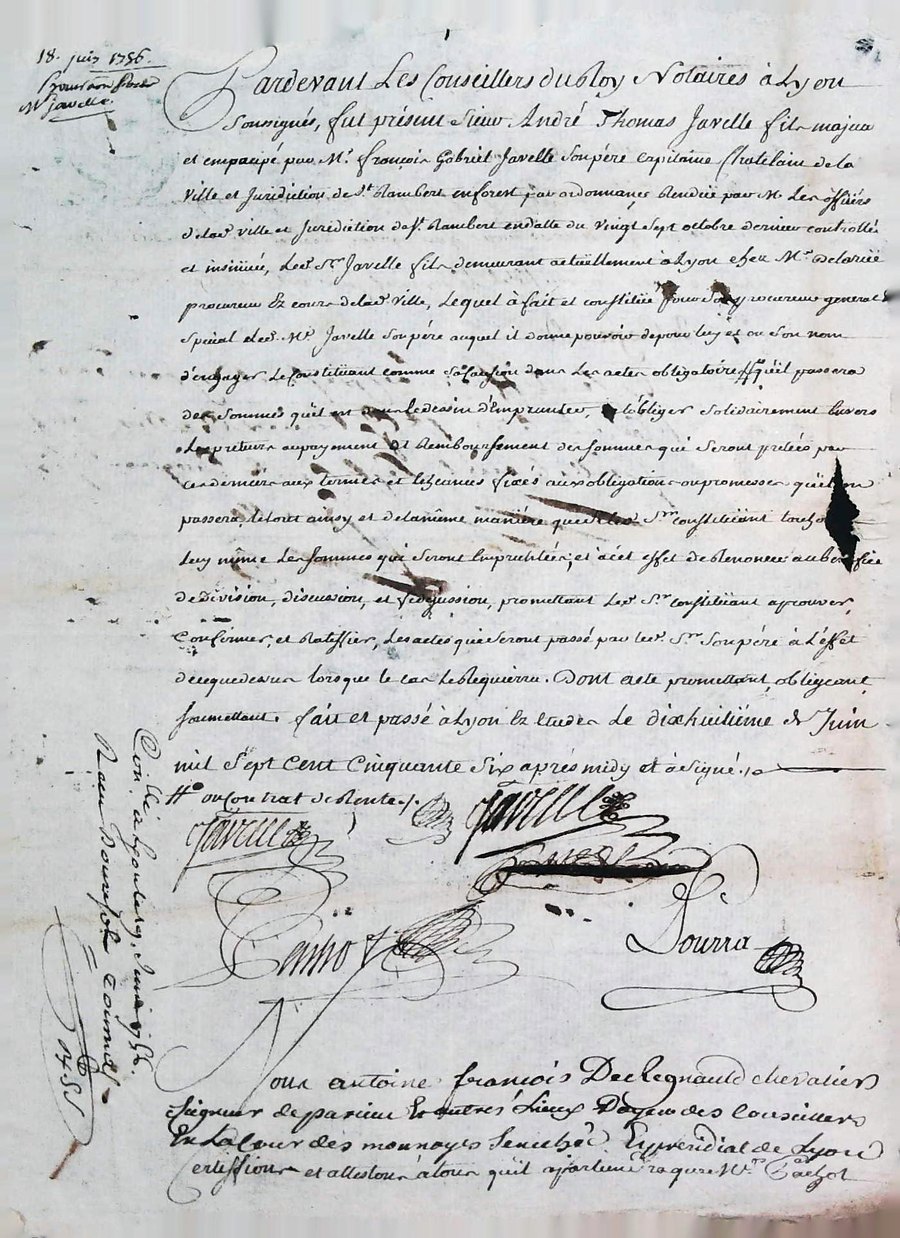 18. juin 1756.
Mr Javelle.
Pardevant Les Conseillers du Roy Notaires à Lyon
Soussignés, fut présent Sieur André Thomas Javelle fils majeur
et emancipé par Mr. françois Gabriel Javelle Son père capitaine Chatelain de la
Ville et Juridiction de St. Rambert en forest, par ordonnance Rendüe par Mrs Les officiers
de lad. ville et Juridiction de St. Rambert en datte du Vingt Sept octobre dernier controllé
et insinuée, Led. Sr. Javelle fils demeurant actuëllement à Lyon chez Mr.
procureur Ez cours de lad. Ville, Lequel à fait et constitüé pour Son procureur general
Special led. Mr. Javelle Son père auquel il donne pouvoir de pour luy et en Son nom
d'engager Le constituant comme Sa caution dans Les actes obligatoire # qu'il passera
des Sommes qu'il est dans le dessin d'Emprunter, l'obliger Solidairement Envers
Les préteurs au payement et Remboursement des sommes qui Seront prétées par
ces derniers aux termes et Echeances fixés aux obligations ou promesses qu'il
passera, le tout ainsy et de la même manière que Si led. Sr. constitüant
Luy même Les sommes qui Seront Empruntées, et à cet effet de Renoncer au benefice
de Division, discussion, et fidejussion, promettant Led. Sr. constitüant aprouver,
Confirmer, et Ratiffier, Les actes qui Seront passé par led. Sr. Son père à L'effet
de ce que dessus lorsque le cas Le Requierra. Dont acte promettant, obligeant,
soumettant. fait et passé à Lyon Ez etudes Le dixhuitième de Juin
mil Sept Cent Cinquante Six après midy et à Signé./.
# ou Contrat de Rente./.
Javelle
Javelle
Dourra
Conllé à Lyon le 19. Juin 1756.
Reçu Douze sols
Nous antoine françois De Regnauld chevalier
Seigneur de parcieu Et autres Lieux Doyen des Conseillers
En La Cour des monnoyes Senechée. Et presidial de Lyon
Certiffions et attestons à tous qu'il apartiendra que Mr.